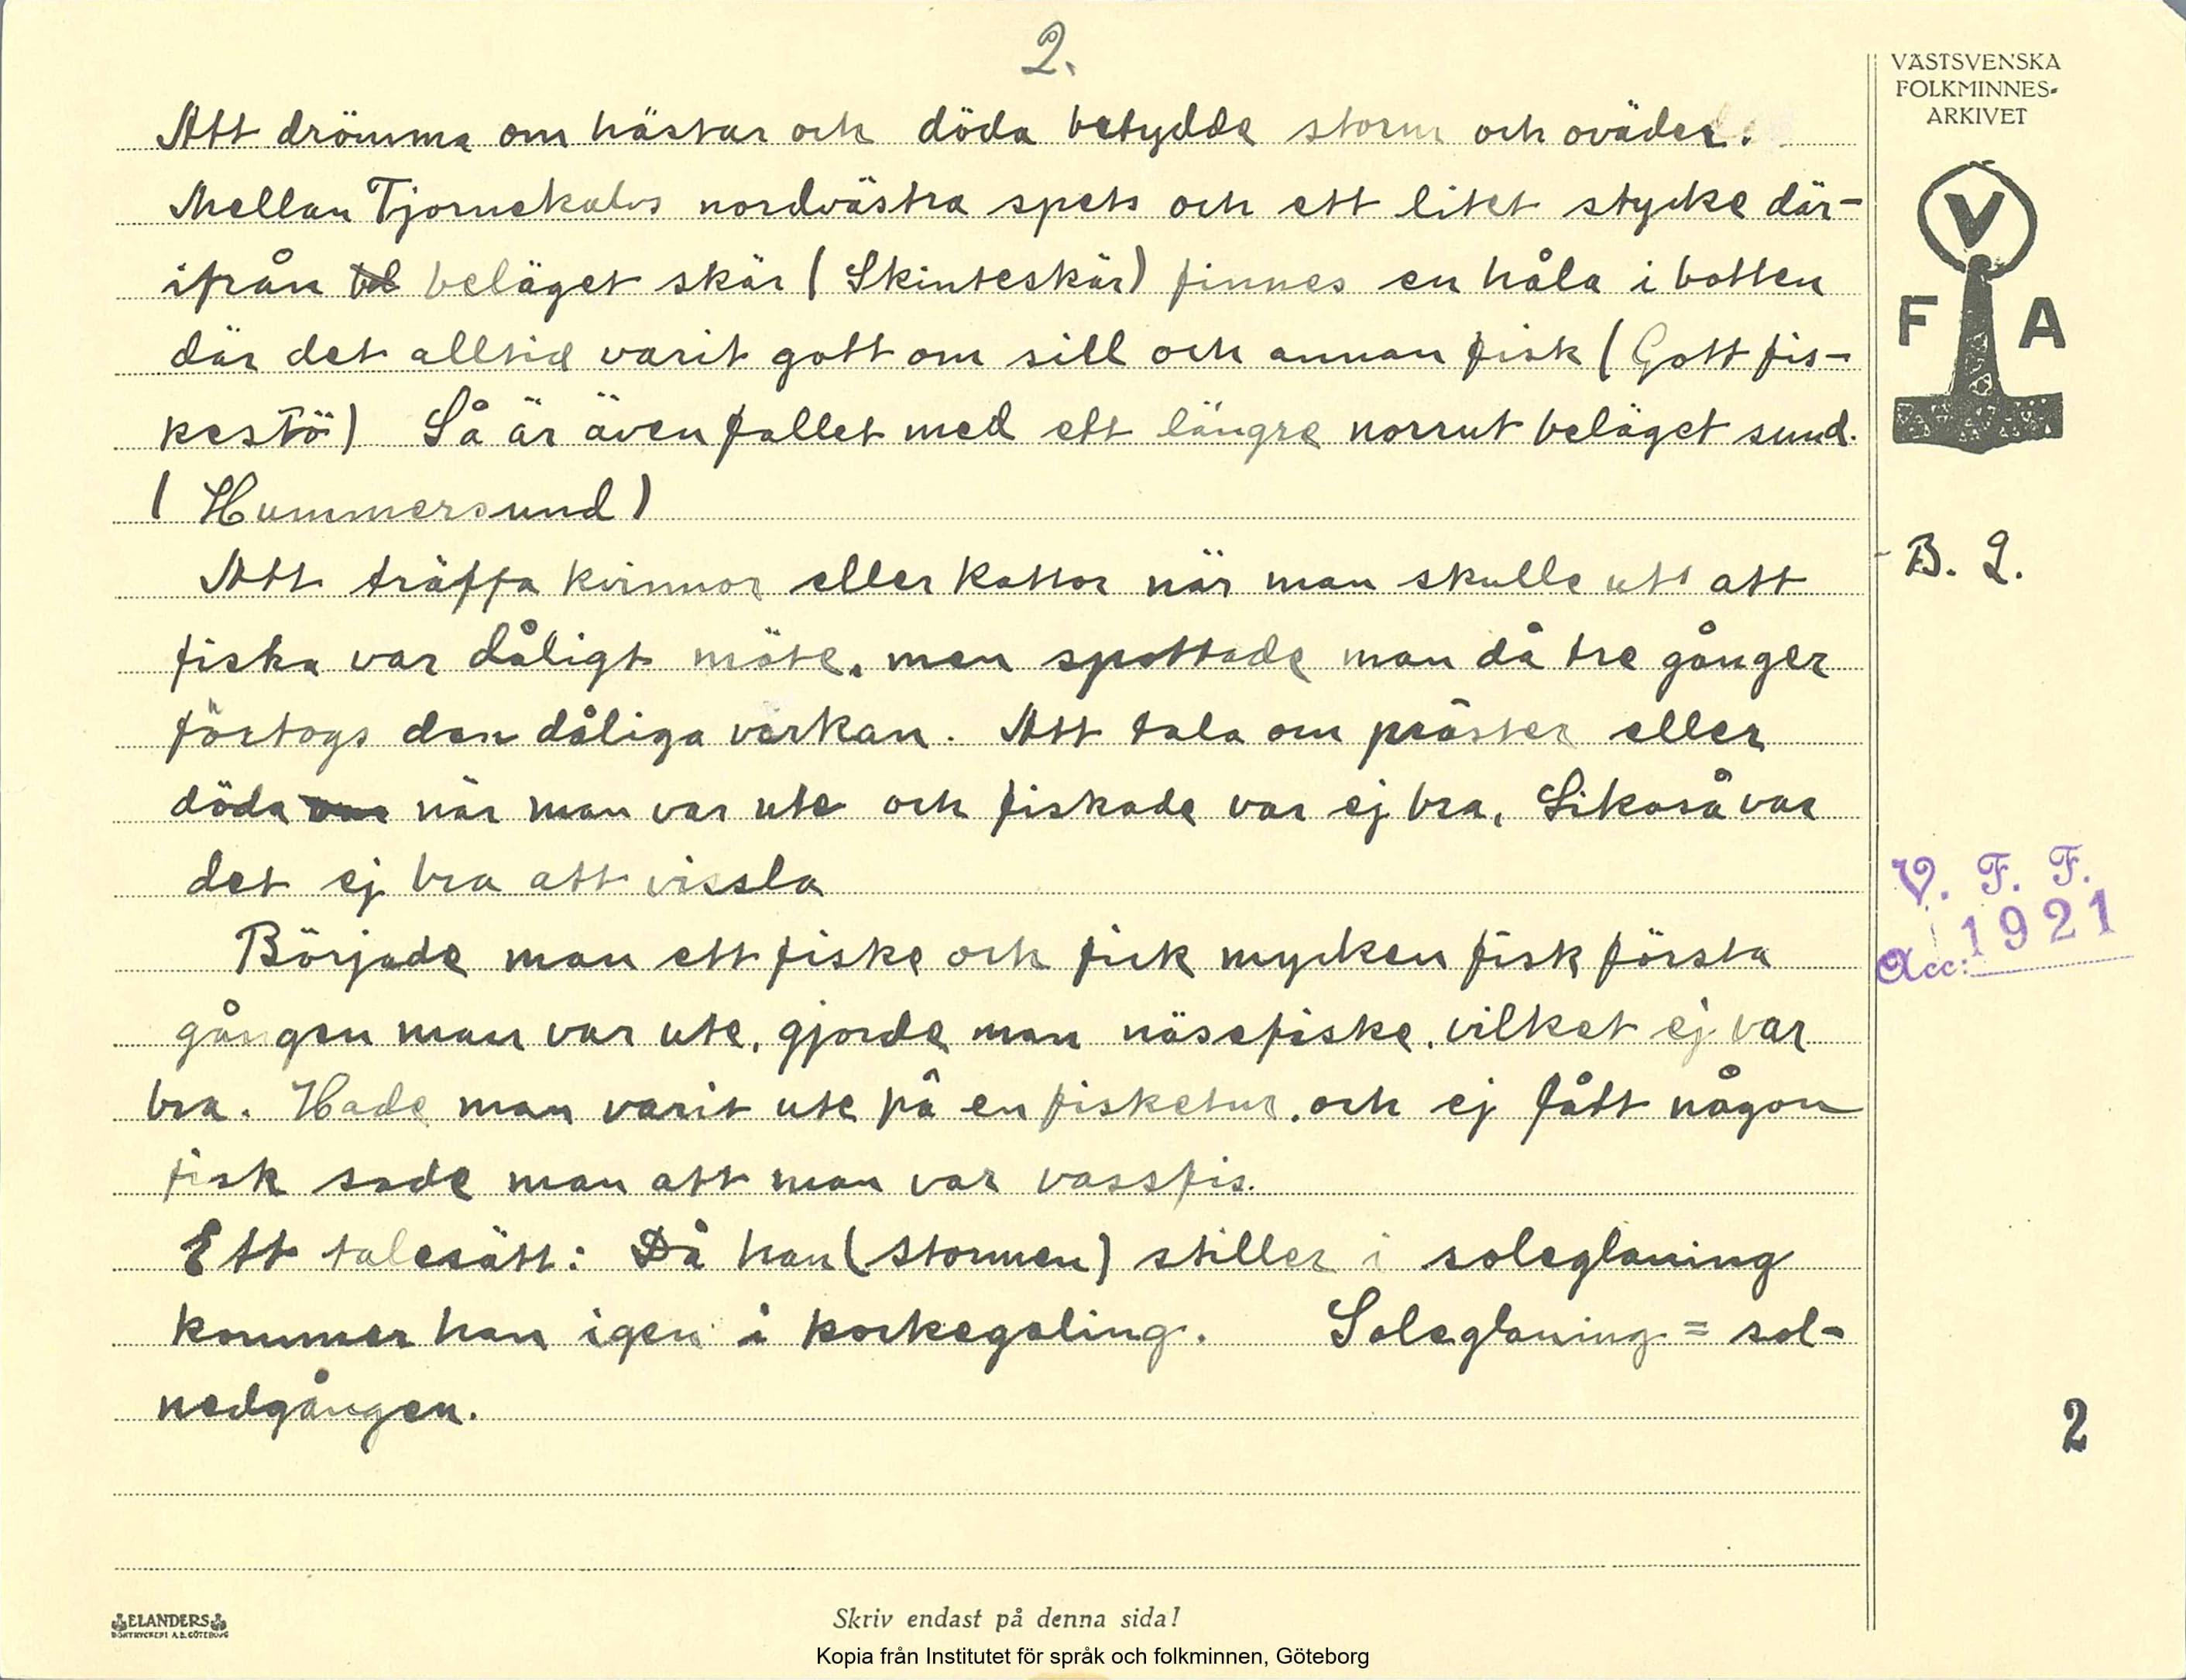 2.
VÄSTSVENSKA
FOLKMINNES-
ARKIVET
V
F A
Att drömma om hästar och döda betydde storm och oväder.
Mellan Tjornekalvs nordvästra spets och ett litet stycke där-
ifrån bel beläget skär (Skinteskär) finnes en håla i botten
där det alltid varit gott om sill och annan fisk (Gott fis-
kestö) Så är även fallet med ett längre norrut beläget sund.
(Hummersund)
Att träffa kvinnor eller kattor när man skulle ut att
B. 2.
fiska var dåligt möte, men spottade man då tre gånger
förtogs den dåliga värkan. Att tala om präster eller
döda när man var ute och fiskade var ej bra, Likaså var
det ej bra att vissla
V. F. F.
Acc: 1921
Började man ett fiske och fick mycken fisk första
gången man var ute, gjorde man näsefiske, vilket ej var
bra. Hade man varit ute på en fisketur, och ej fått någon
fisk sade man att man var vassfis.
Ett talesätt: Då han (stormen) stiller i soleglaning
kommer han igen i kockegaling. Soleglaning = sol-
nedgången.
2
ELANDERS
BOKTRYCKERI A.B. GÖTEBORG
Skriv endast på denna sida!
Kopia från Institutet för språk och folkminnen, Göteborg